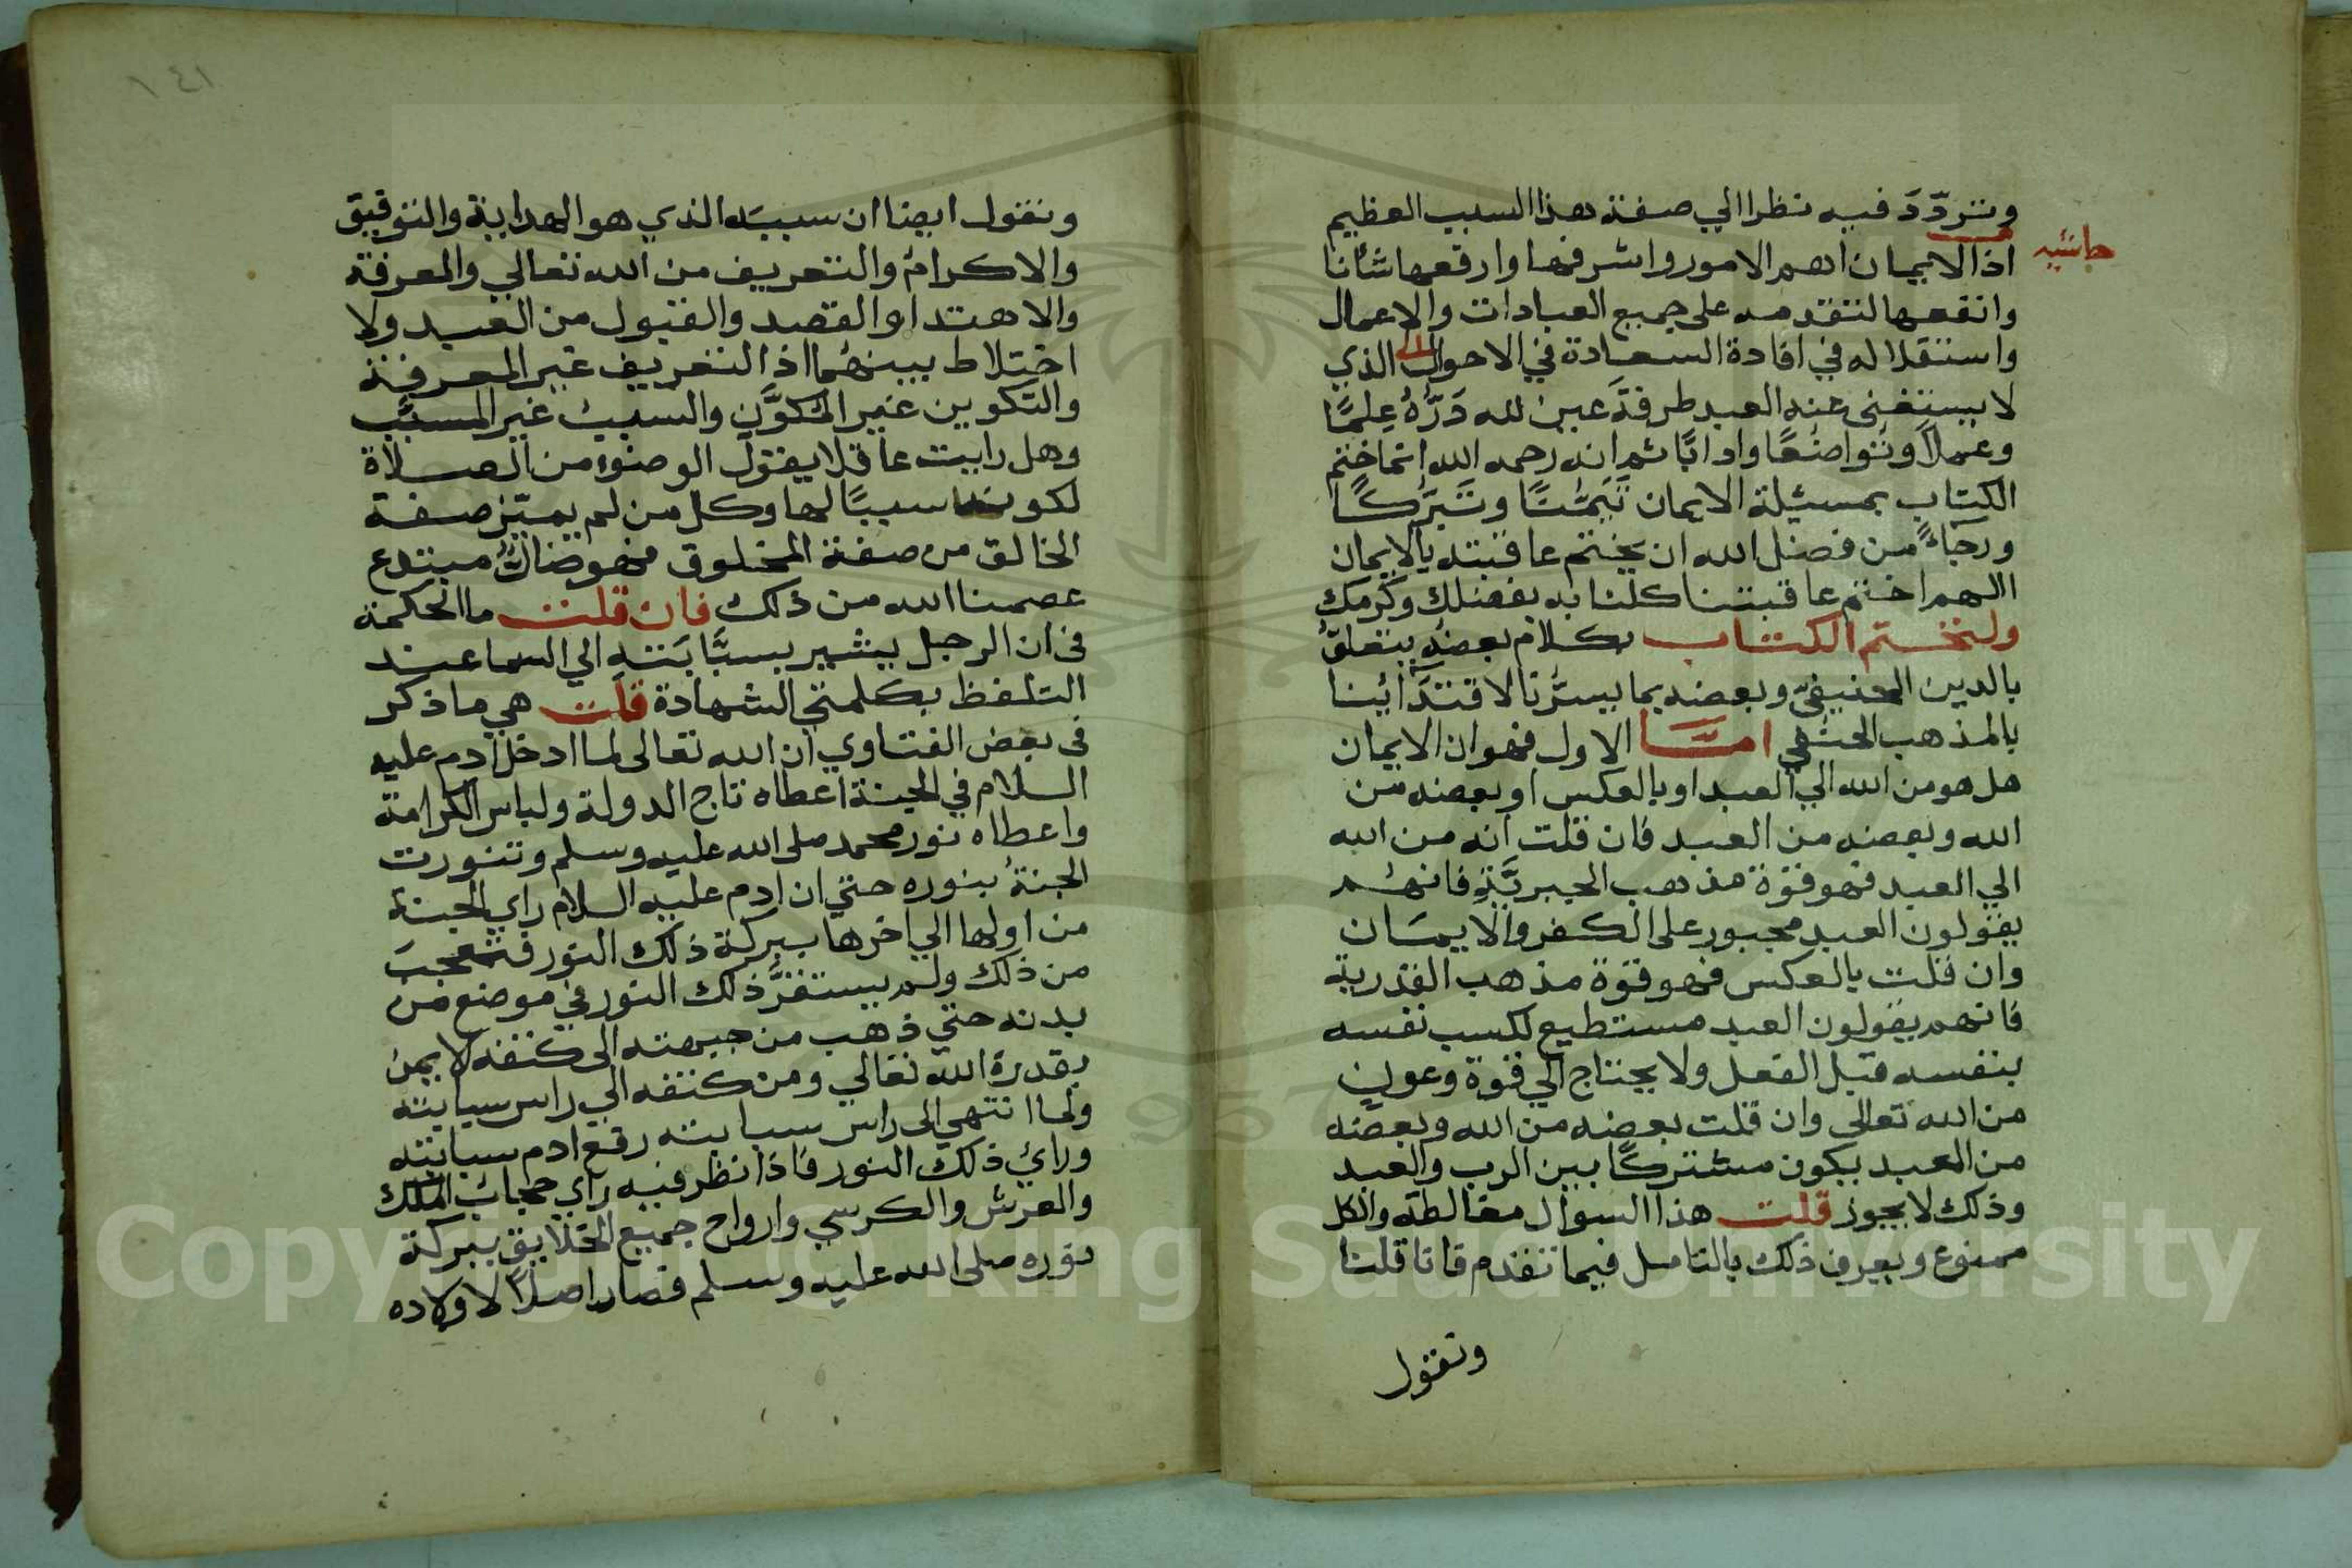 وتردّدَ فيه نظرا الي صفة هذا السبب العظيم
حاشيه
اذ الايمان اهم الامور واشرفها وارفعها شأنا
وانفعها لتقدمه على جميع العبادات والاعمال
واستقلاله في افادة السعادة في الاحوال الذي
لا يستغنى عنه العبد طرفةَ عين لله دَرُّهُ عِلمًا
وعملاً وتواضعًا وادابًا ثم انه رحمه الله انما ختم
الكتاب بمسئيلة الايمان تَيَمُّنًا وتَبَرُّكًا
ورجاءً من فضل الله ان يختم عاقبته بالايمان
اللهم اختم عاقبتنا كلنا به بفضلك وكرمك
ولنختم الكتاب بكلام بعضُه يتعلقُ
بالدين الحنيفيّ وبعضه بما يسرُّنا لاقتدَائِنا
بالمذهب الحنفي امَّا الاول فهو ان الايمان
هل هو من الله الي العبد او بالعكس او بعضه من
الله وبعضه من العبد فان قلت انه من الله
الي العبد فهو قوة مذهب الجبريَّةِ فانهُم
يقولون العبد مجبور على الكفر والايمان
وان قلت بالعكس فهو قوة مذهب القدرية
فانهم يقولون العبد مستطيع لكسب نفسه
بنفسه قبل الفعل ولا يحتاج الي قوة وعون
من الله تعالى وان قلت بعضه من الله وبعضه
من العبد يكون مشتركًا بين الرب والعبد
وذلك لا يجوز قلت هذا السوال مغالطة والكل
ممنوع ويعرف ذلك بالتامل فيما تقدم فانا قلنا
ونقول
١٤١
ونقول ايضا ان سببَه الذي هو الهداية والتوفيق
والاكرامُ والتعريف من الله تعالي والمعرفة
والاهتدا والقصد والقبول من العبد ولا
اختلاط بينهُما اذ التعريف غير المعرفة
والتكوين غير المكوَّن والسبب غير المسبَّب
وهل رايت عاقلا يقول الوضوء من الصلاة
لكونه سببًا لها وكل من لم يميّز صفة
الخالق من صفة المخلوق فهو ضالٌّ مبتدع
عصمنا الله من ذلك فان قلت ما الحكمة
فى ان الرجل يشير بسبَّابَتهِ الي السما عند
التلفظ بكلمتي الشهادة قلت هي ما ذكر
فى بعض الفتاوي ان الله تعالى لما ادخل ادم عليه
السلام في الجنة اعطاه تاج الدولة ولباس الكرامة
واعطاه نور محمد صلى الله عليه وسلم وتنورت
الجنةُ بنوره حتي ان ادم عليه السلام راي الجنة
من اولها الي اخرها ببركة ذلك النور فتعجبَ
من ذلك ولم يستقرَّ ذلك النور في موضع من
بدنه حتي ذهب من جبهته الى كتفه الايمن
بقدرة الله تعالي ومن كتفه الي راس سبابته
ولما انتهي الى راس سبابته رفع ادم سبابته
ورائ ذلك النور فاذا نظر فيه راي عجائب الملك
والعرش والكرسي وارواح جميع الخلايق ببركة
نوره صلى الله عليه وسلم فصار اصلاً لاولاده
Copyright © King Saud University
1957